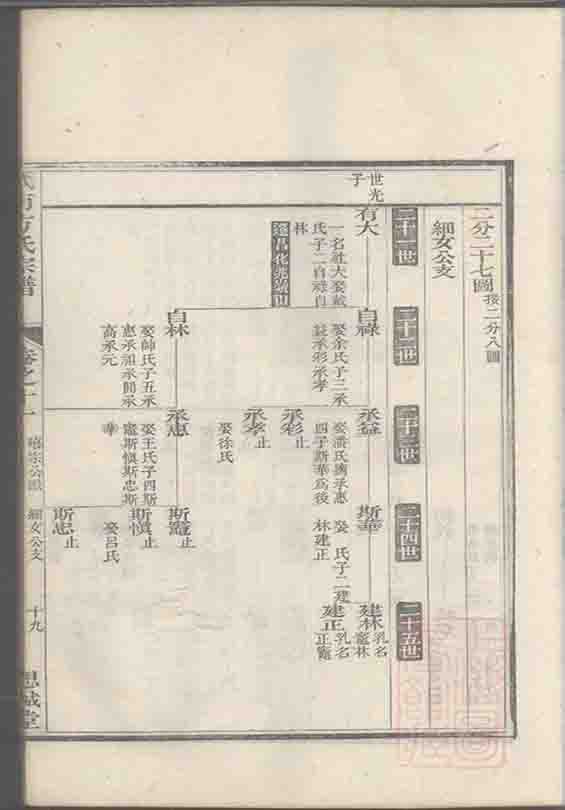 二分二十七圖 接二分八圖
細女公支
二十一世
二十二世
二十三世
二十四世
二十五世
世光
子
有大
一名社大娶戴
氏子二自祿自
林
自祿
娶余氏子三承
益承彩承孝
承益
娶潘氏撫承惠
四子斯華爲後
斯華
娶 氏子二建
林建正
建林
乳名
寵林
建正
乳名
正寵
承彩
止
承孝
娶徐氏
止
自林
娶帥氏子五承
惠承祖承師承
高承元
承惠
娶王氏子四斯
寵斯慎斯忠斯
華
斯寵
止
斯慎
娶呂氏
止
斯忠
止
方氏宗譜
卷之十一
細女公支
十九
思誠堂